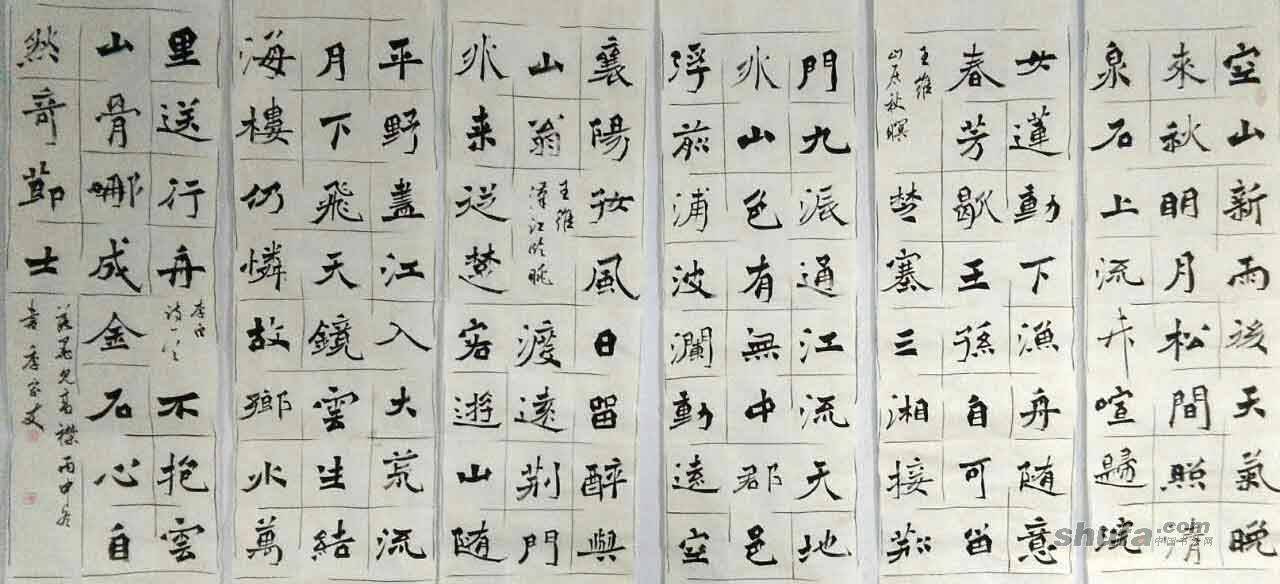 空山新雨後天氣晚
來秋明月松間照清
泉石上流竹喧歸浣
女蓮動下漁舟随意
春芳歇王孫自可留
王維
山居秋暝
楚塞三湘接荊
門九派通江流天地
外山色有無中郡邑
浮前浦波瀾動遠空
襄陽好風日留醉與
山翁
王維
漢江臨眺
渡遠荊門
外来從楚遊山随
平野盡江入大荒流
月下飛天鏡雲生結
海樓仍憐故鄉水萬
里送行舟
李白
詩一首
不抱雲
山骨哪成金石心自
然奇節士
兄高襟丙申冬
書
shufa.com
中国书法网